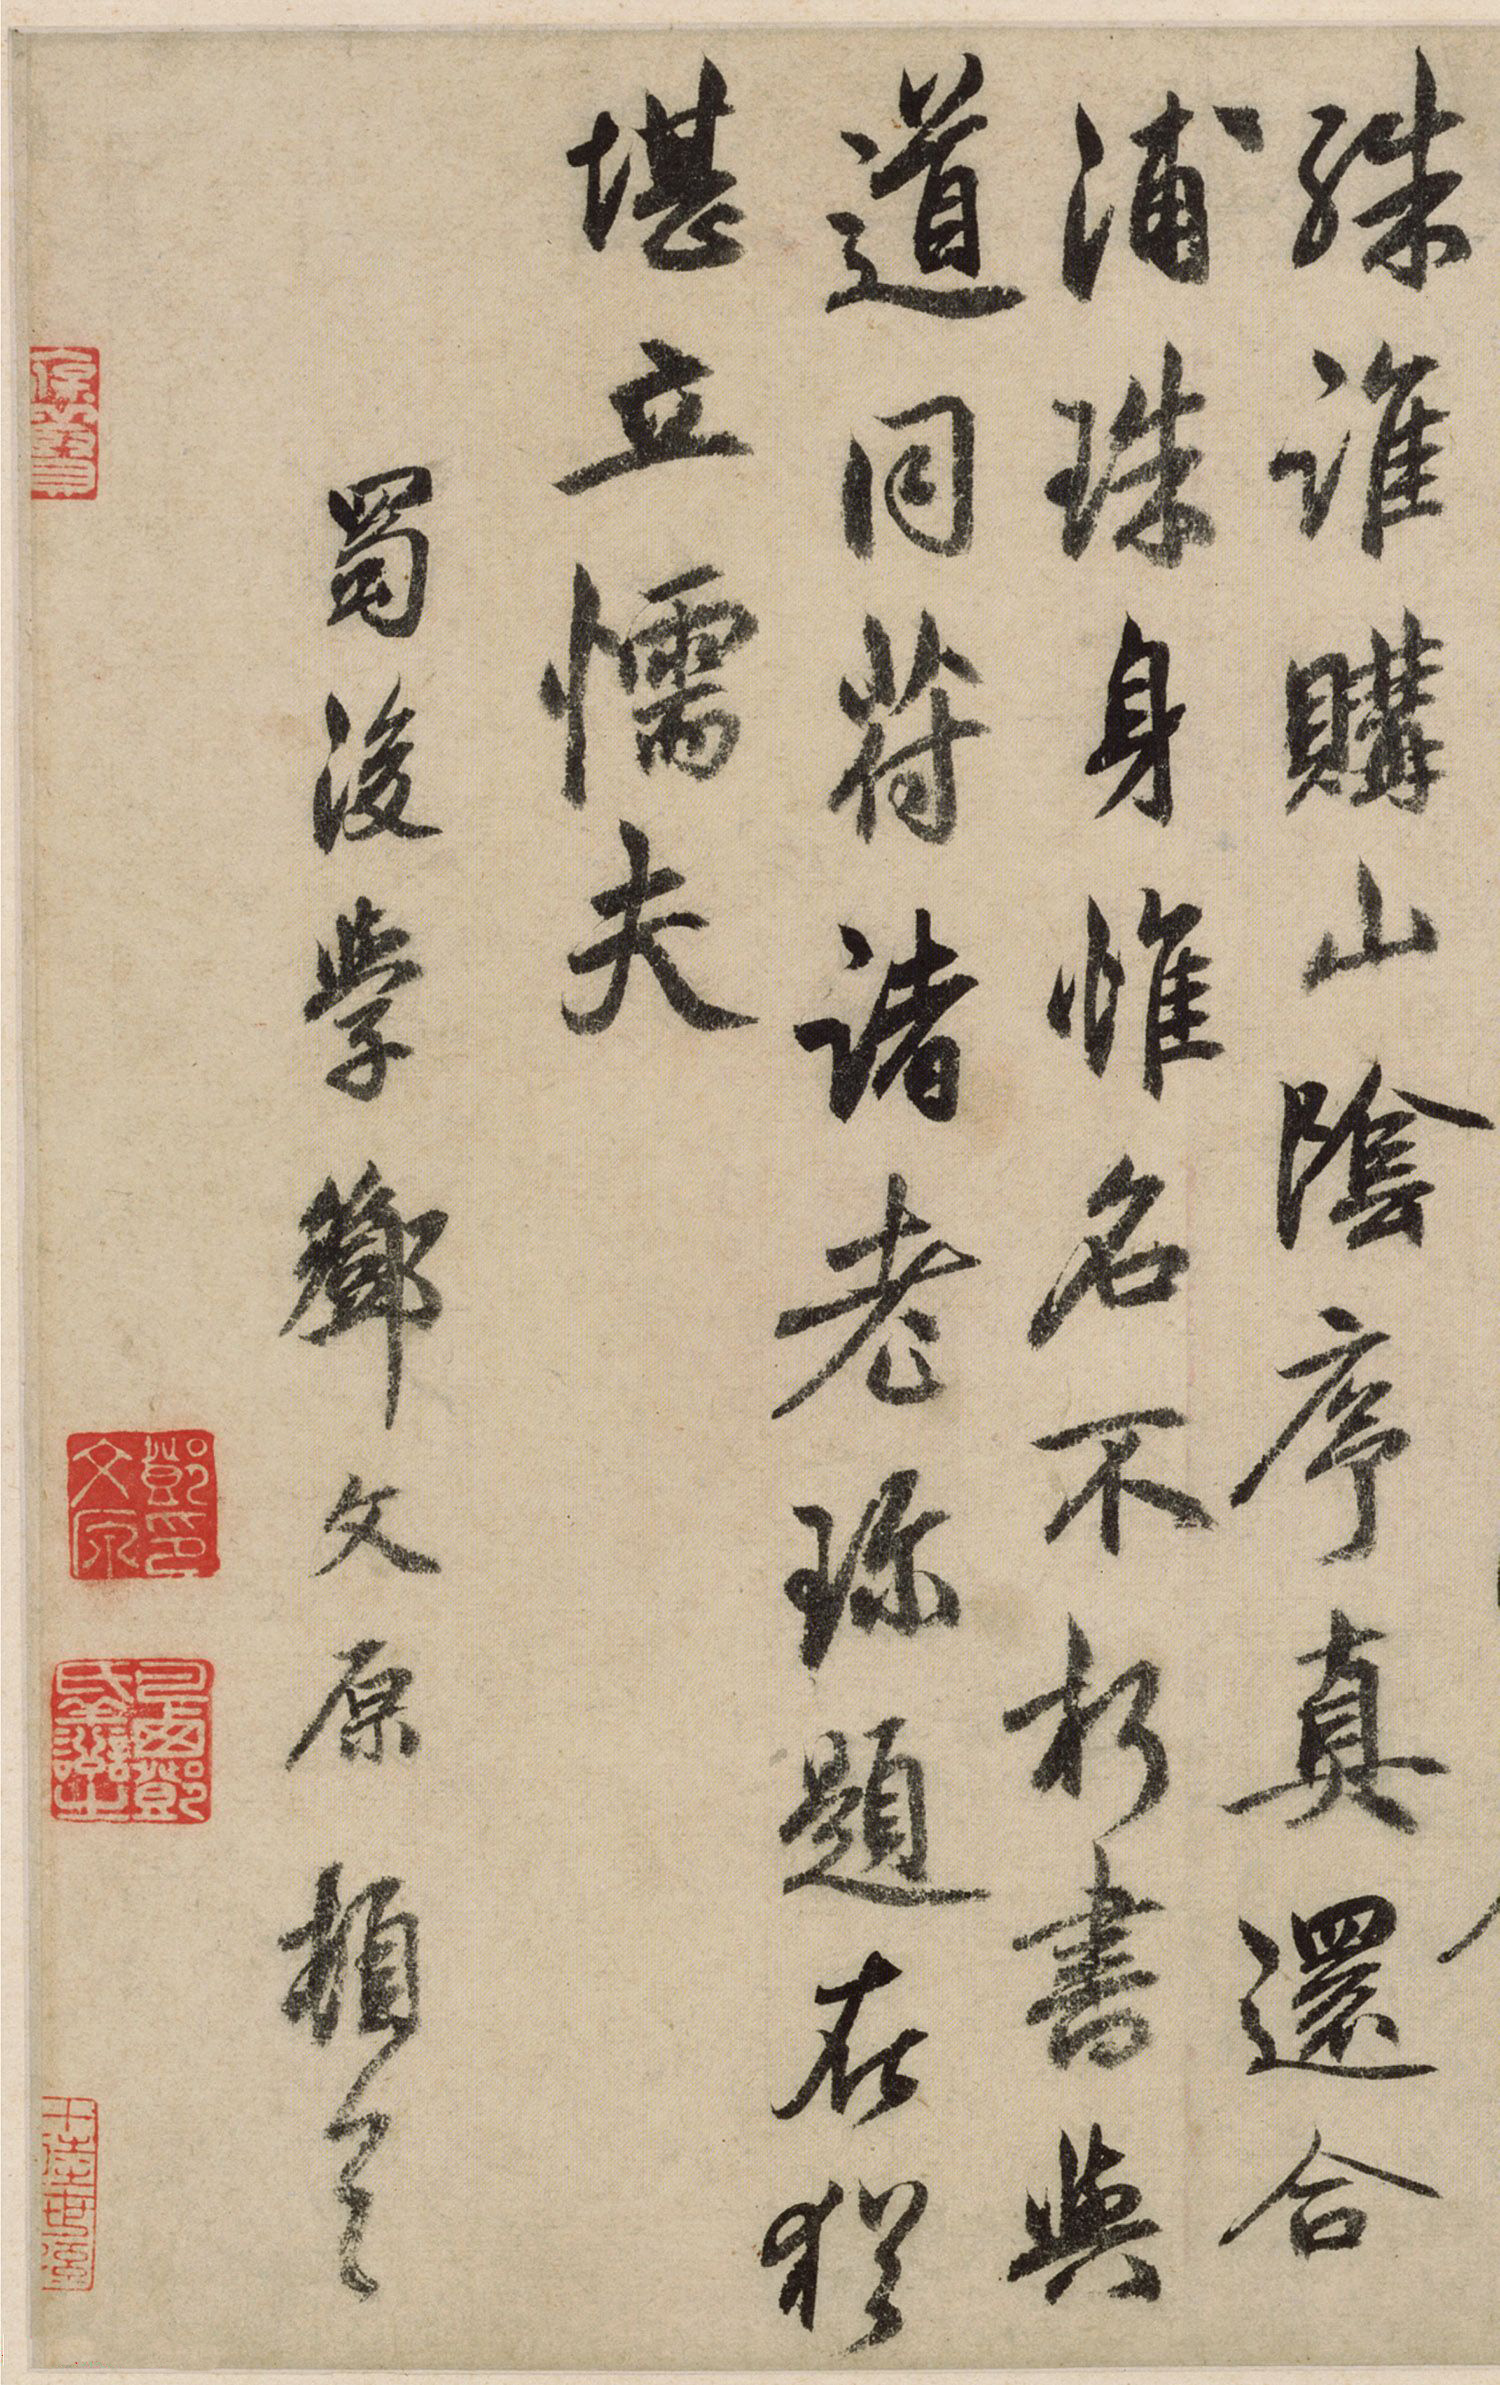 殊誰購山陰序真還合
浦珠身惟名不朽書與
道同符諸老珎題在猶
堪立懦夫
蜀後學鄧文原頓首
鄧印文原